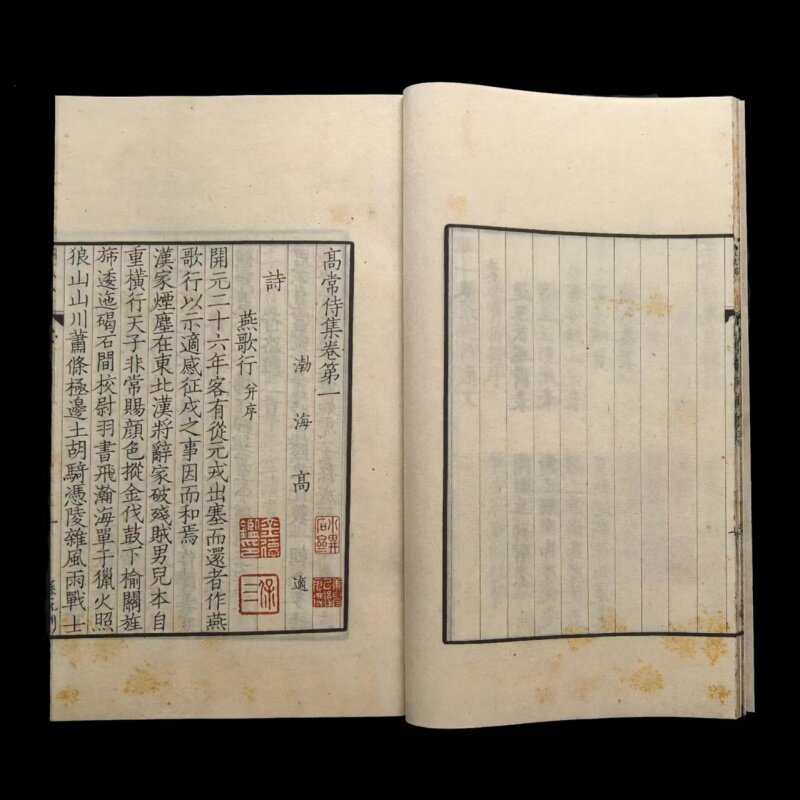 高常侍集卷第一
渤海高適
詩
燕歌行 并序
開元二十六年客有從元戎出塞而還者作燕
歌行以示適感征戍之事因而和焉
漢家煙塵在東北漢將辭家破殘賊男兒本自
重橫行天子非常賜顏色摐金伐鼓下榆關旌
斾逶迤碣石間校尉羽書飛瀚海單于獵火照
狼山山川蕭條極邊土胡騎憑陵雜風雨戰士